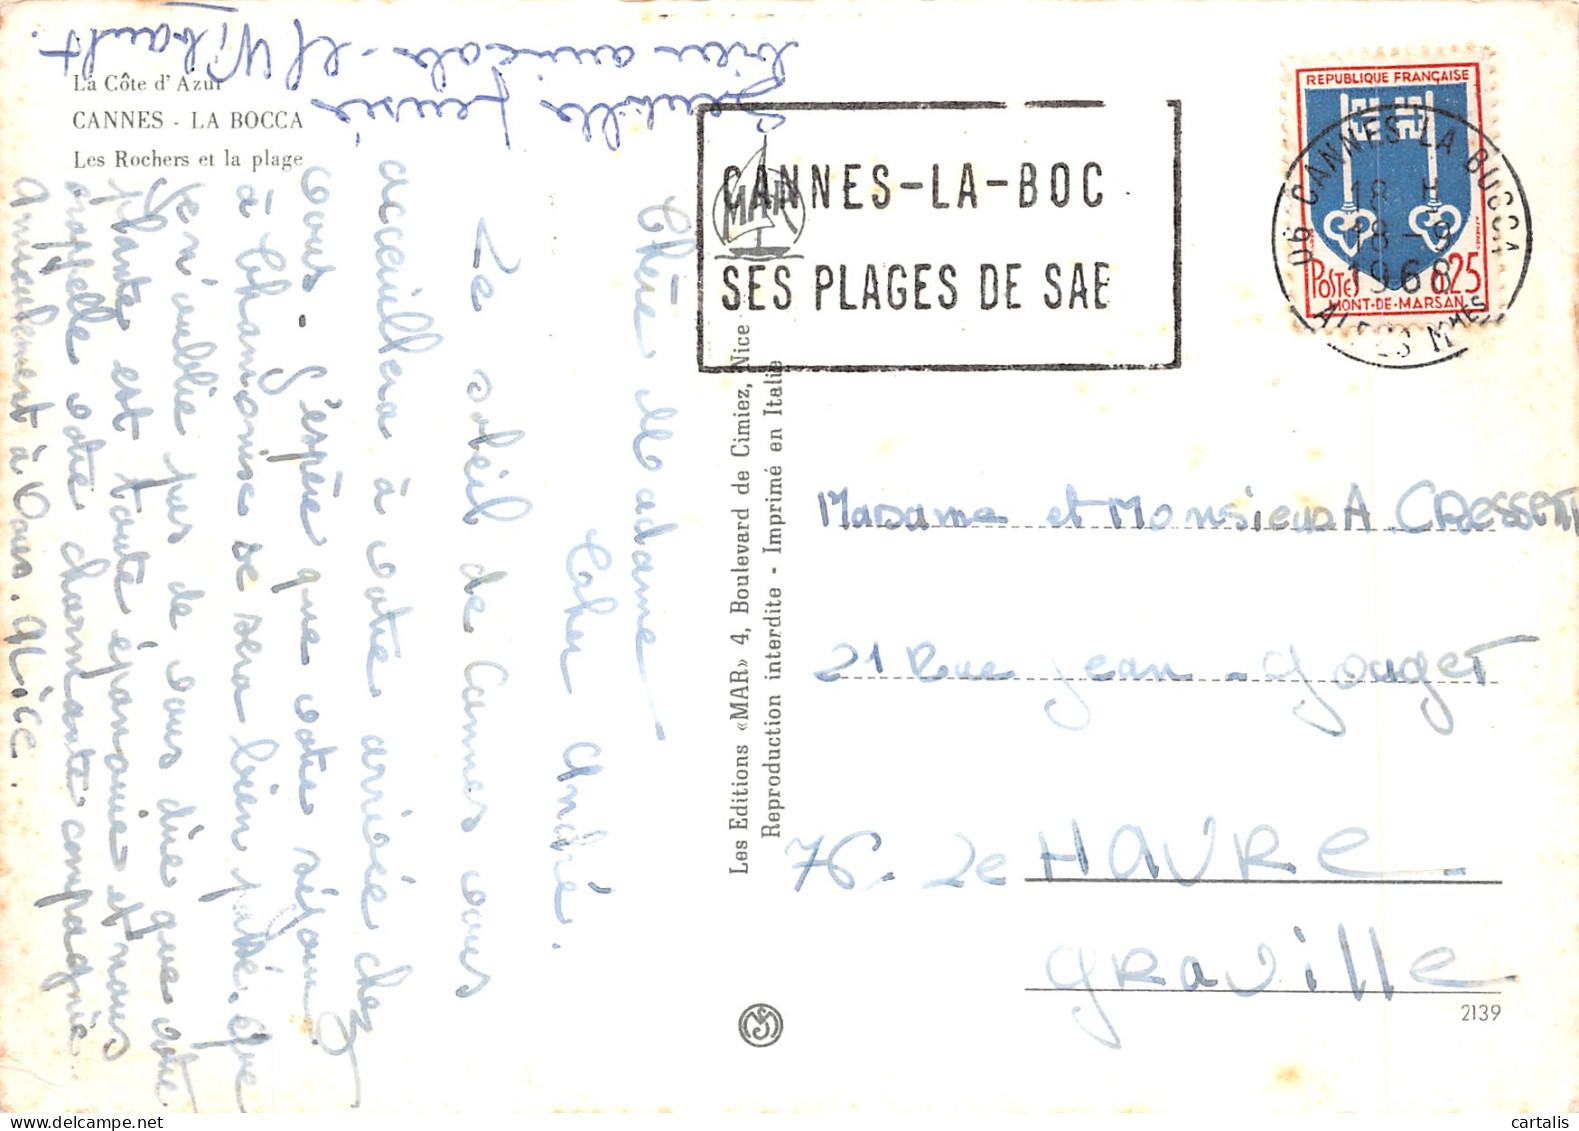 La Côte d'Azur
CANNES - LA BOCCA
Les Rochers et la plage
Chère Madame
Cher André.
Le soleil de Cannes vous
accueillera à votre arrivée chez
vous - J'espère que votre séjour
à Chamonix se sera bien passé. que
je n'oublie pas de vous dire que votre
plante est toute épanouie et nous
rappelle votre charmante compagnie
Amicalement à vous. Alice.
Gentille pensée
bien amicale - et Wibault.
Les Editions «MAR» 4, Boulevard de Cimiez, Nice
Reproduction interdite - Imprimé en Italie
MAR
CANNES-LA-BOC
SES PLAGES DE SAB
REPUBLIQUE FRANÇAISE
POSTES 0,25
MONT-DE-MARSAN
06 CANNES LA BOCCA
18 H
18-9
1968
ALPES MMES
Madame et Monsieur A CRESSENT
21 Rue Jean-Gouget
76. Le HAVRE
Graville
2139
cartalis